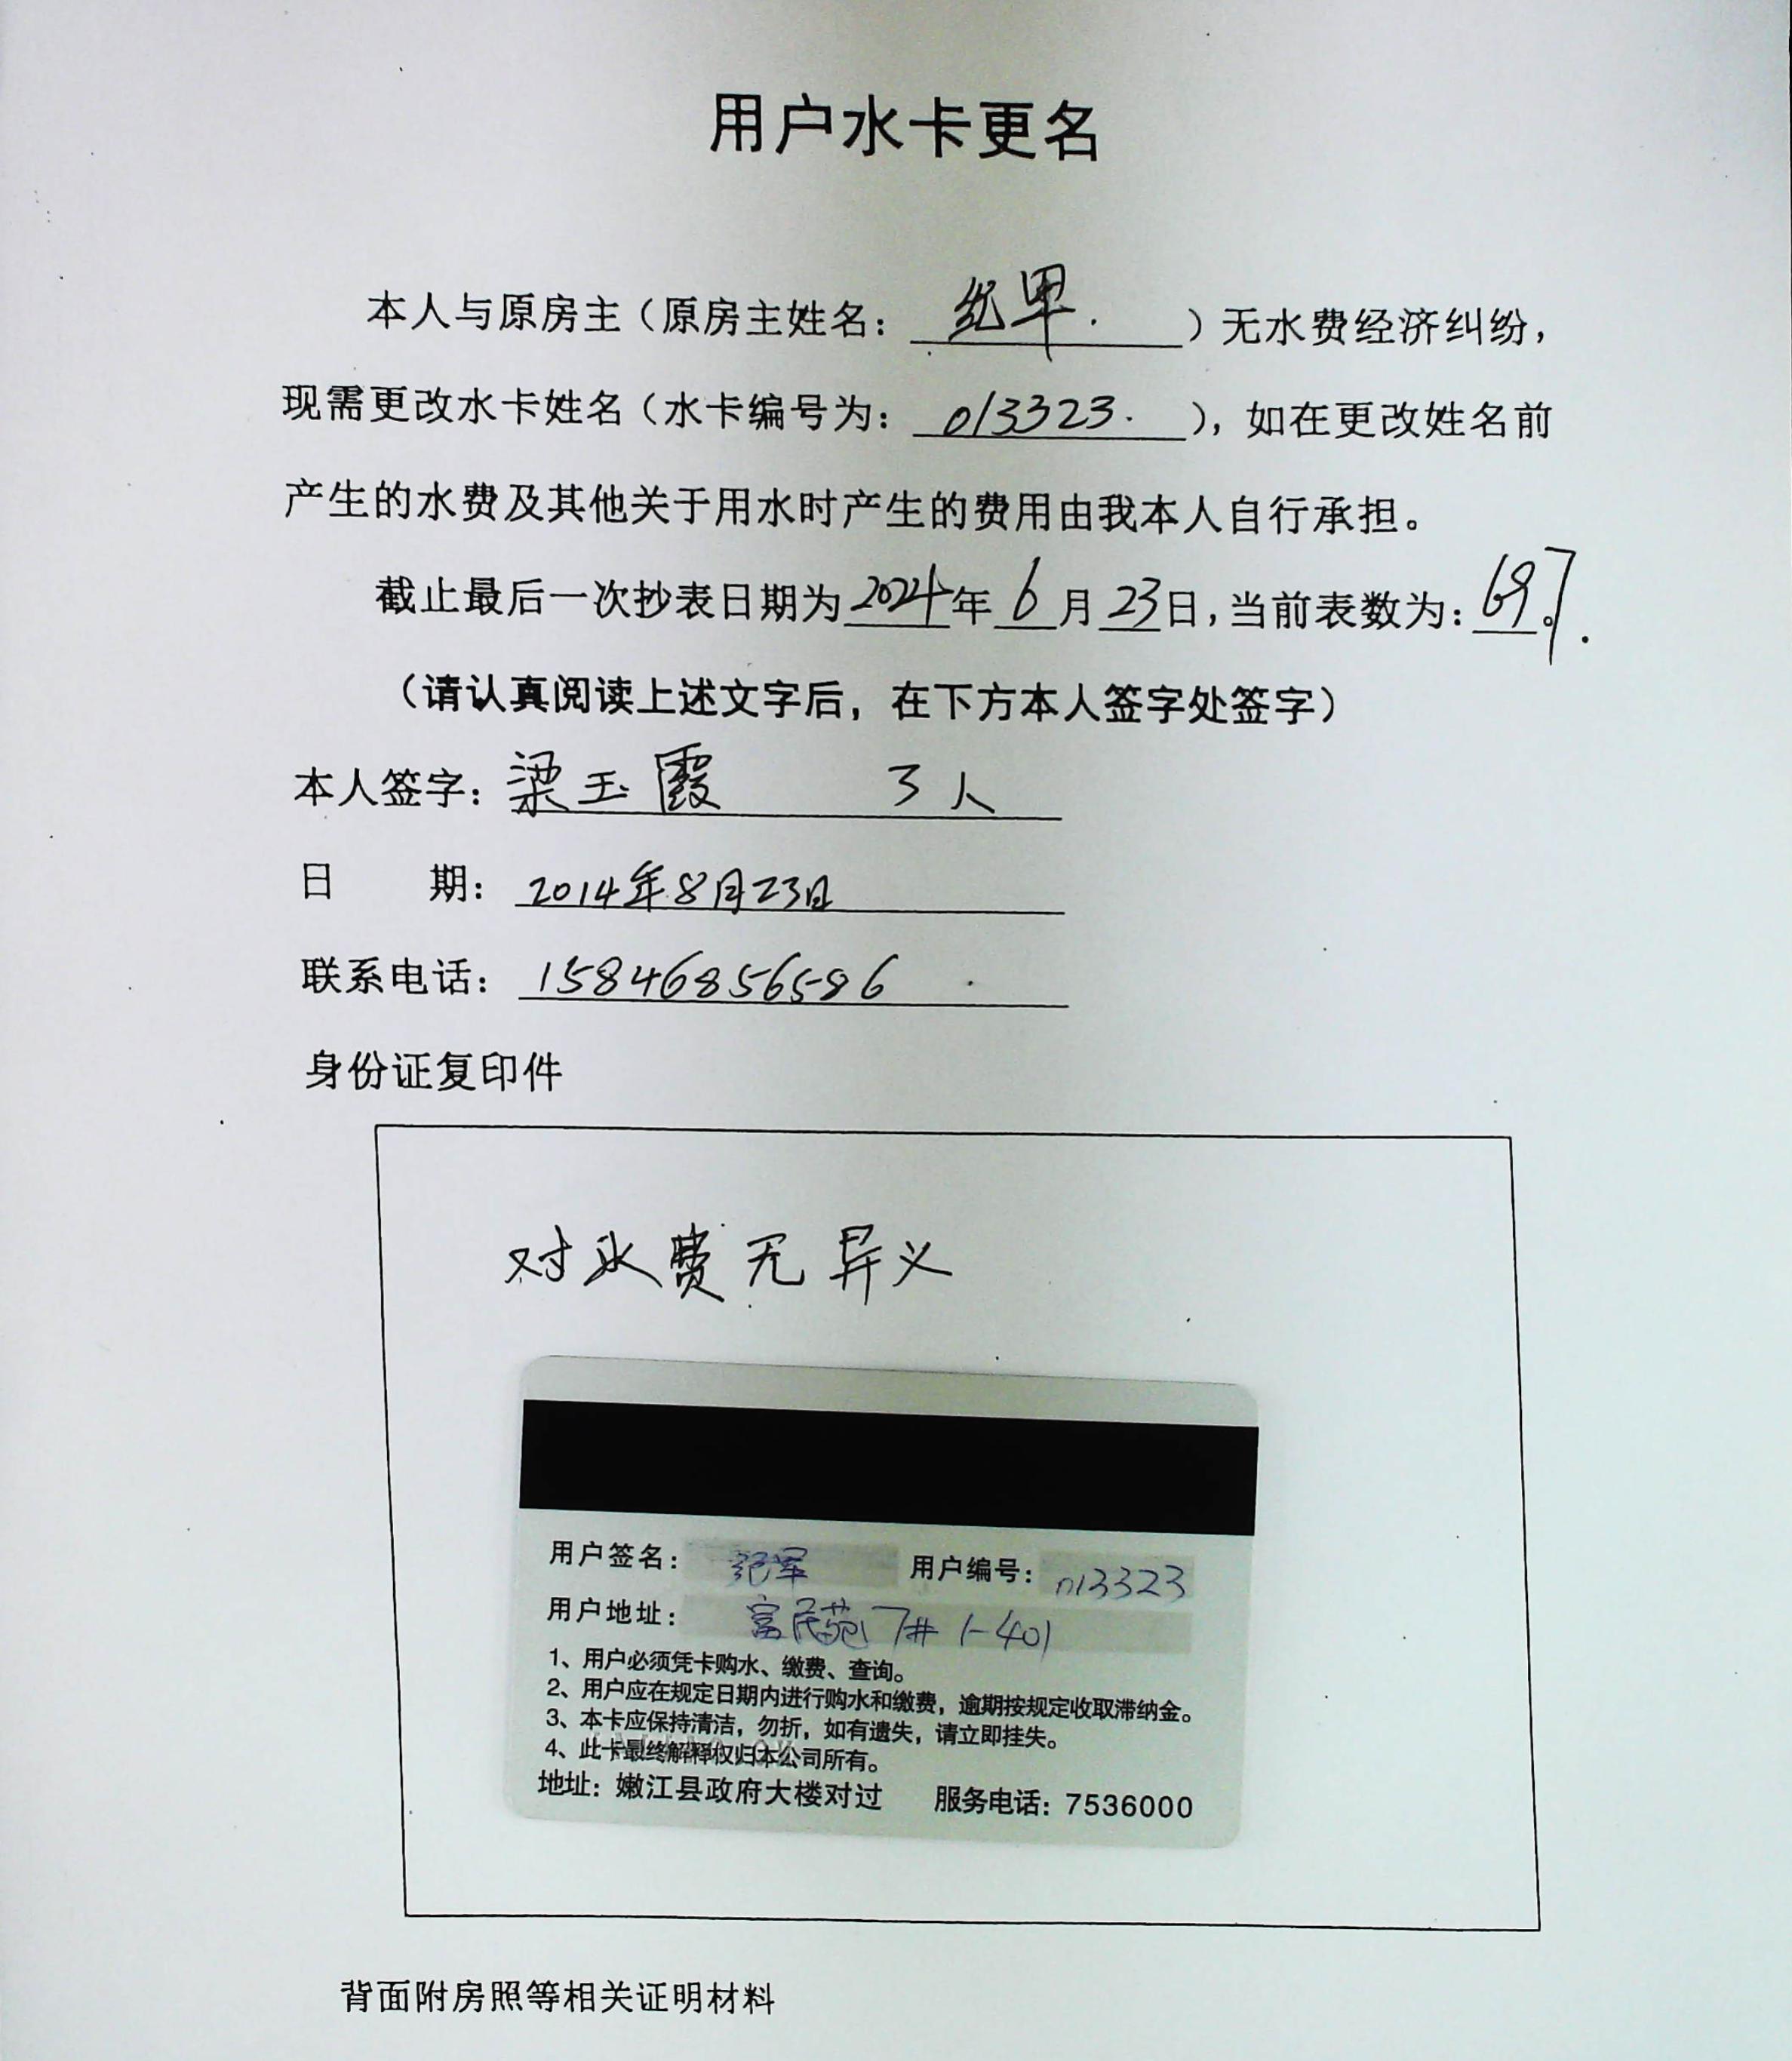 用户水卡更名
本人与原房主（原房主姓名：纪军.）无水费经济纠纷，
现需更改水卡姓名（水卡编号为：013323.），如在更改姓名前
产生的水费及其他关于用水时产生的费用由我本人自行承担。
截止最后一次抄表日期为2024年6月23日，当前表数为：697。
（请认真阅读上述文字后，在下方本人签字处签字）
本人签字：梁玉霞 3人
日 期：2014年8月23日
联系电话：15846856586
身份证复印件
对水费无异义
用户签名：纪军 用户编号：013323
用户地址：富民苑7# 1-401
1、用户必须凭卡购水、缴费、查询。
2、用户应在规定日期内进行购水和缴费，逾期按规定收取滞纳金。
3、本卡应保持清洁，勿折，如有遗失，请立即挂失。
4、此卡最终解释权归本公司所有。
地址：嫩江县政府大楼对过 服务电话：7536000
背面附房照等相关证明材料